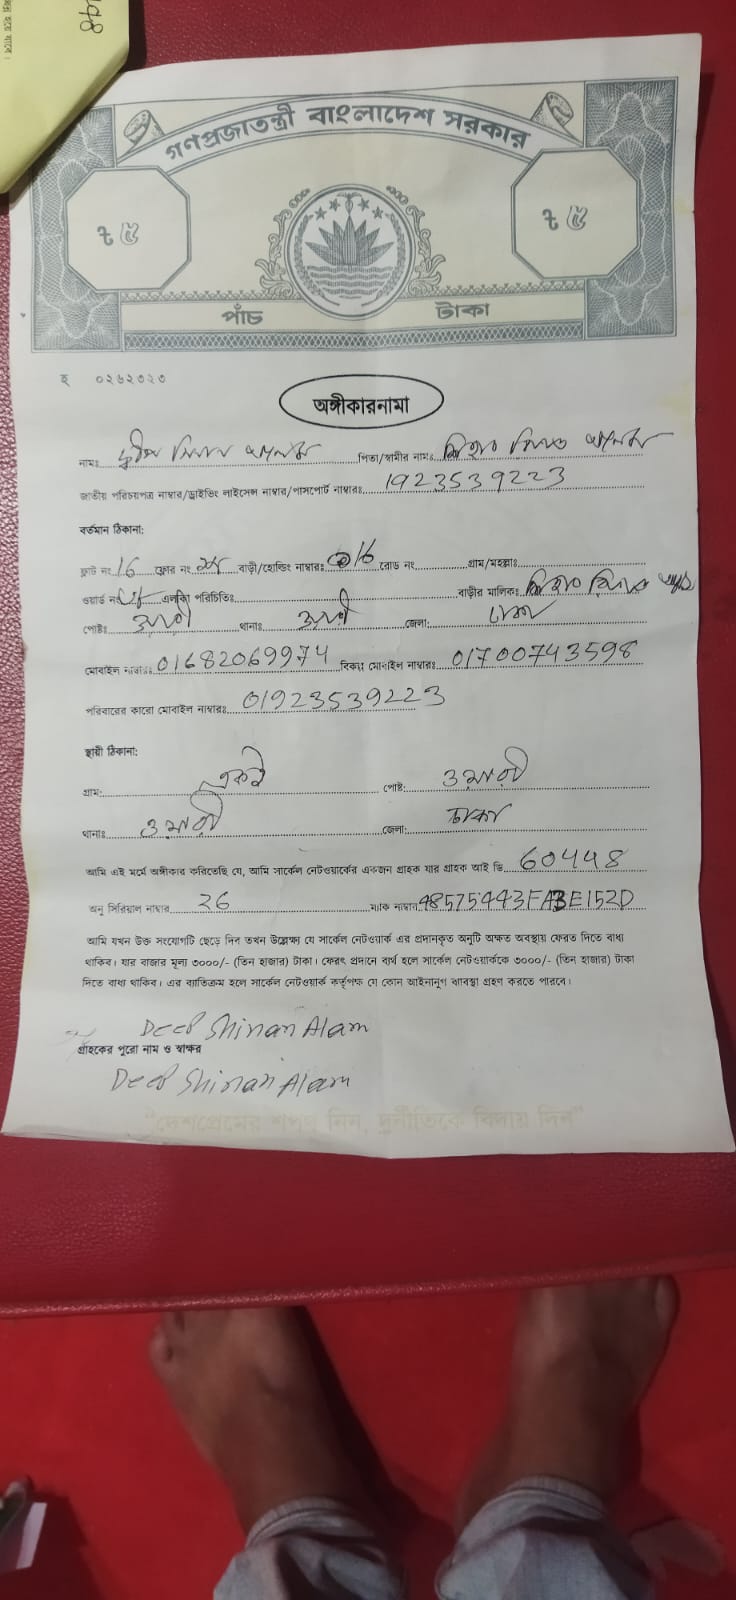 ৭48
গণপ্রজাতন্ত্রী বাংলাদেশ সরকার
৳ ৫ ৳ ৫
পাঁচ টাকা
হ ০২৬২৩২৩
অঙ্গীকারনামা
নামঃ পিতা/স্বামীর নামঃ
জাতীয় পরিচয়পত্র নাম্বার/ড্রাইভিং লাইসেন্স নাম্বার/পাসপোর্ট নাম্বারঃ 1923539223
বর্তমান ঠিকানা:
ফ্লাট নং 16 ফ্লোর নং বাড়ী/হোল্ডিং নাম্বারঃ 16 রোড নং গ্রাম/মহল্লাঃ
ওয়ার্ড নং এলাকা পরিচিতিঃ বাড়ীর মালিকঃ
পোষ্টঃ ওয়ারী থানাঃ ওয়ারী জেলা: ঢাকা
মোবাইল নাম্বারঃ 01682069974 বিকল্প মোবাইল নাম্বারঃ 01700743598
পরিবারের কারো মোবাইল নাম্বারঃ 01923539223
স্থায়ী ঠিকানা:
গ্রাম: একই পোষ্ট: ওয়ারী
থানাঃ ওয়ারী জেলা: ঢাকা
আমি এই মর্মে অঙ্গীকার করিতেছি যে, আমি সার্কেল নেটওয়ার্কের একজন গ্রাহক যার গ্রাহক আই ডি 60448
অনু সিরিয়াল নাম্বার 26 ম্যাক নাম্বার 48575443FABE152D
আমি যখন উক্ত সংযোগটি ছেড়ে দিব তখন উল্লেক্ষ্য যে সার্কেল নেটওয়ার্ক এর প্রদানকৃত অনুটি অক্ষত অবস্থায় ফেরত দিতে বাধ্য
থাকিব। যার বাজার মূল্য ৩০০০/- (তিন হাজার) টাকা। ফেরৎ প্রদানে ব্যর্থ হলে সার্কেল নেটওয়ার্ককে ৩০০০/- (তিন হাজার) টাকা
দিতে বাধ্য থাকিব। এর ব্যতিক্রম হলে সার্কেল নেটওয়ার্ক কর্তৃপক্ষ যে কোন আইনানুগ ব্যবস্থা গ্রহণ করতে পারবে।
Deep Shinan Alam
গ্রাহকের পুরো নাম ও স্বাক্ষর
Deep Shinan Alam
"দেশপ্রেমের শপথ নিন, দুর্নীতিকে বিদায় দিন"